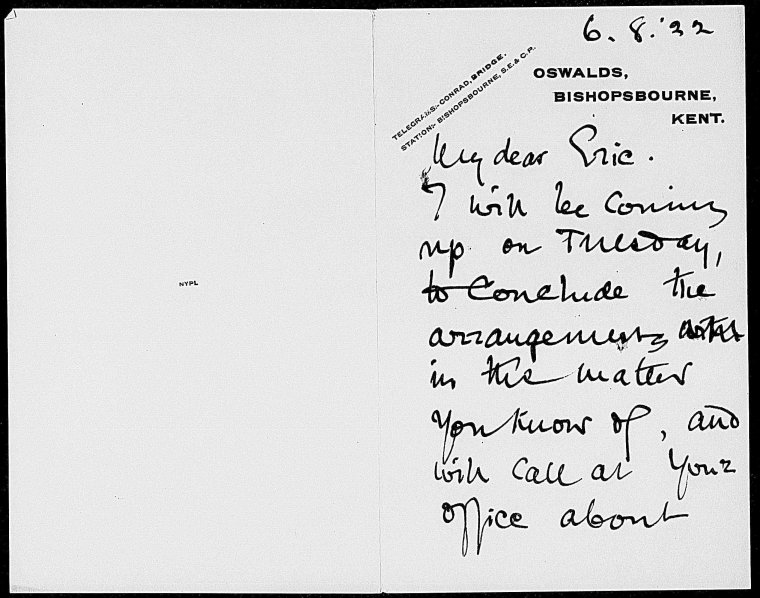 NYPL
6. 8. '22
TELEGRAMS:- CONRAD, BRIDGE.
STATION:- BISHOPSBOURNE, S.E. & C.R.
OSWALDS,
BISHOPSBOURNE,
KENT.
My dear Eric.
I will be coming
up on Tuesday,
to conclude the
arrangements
in the matter
you know of, and
will call at your
office about